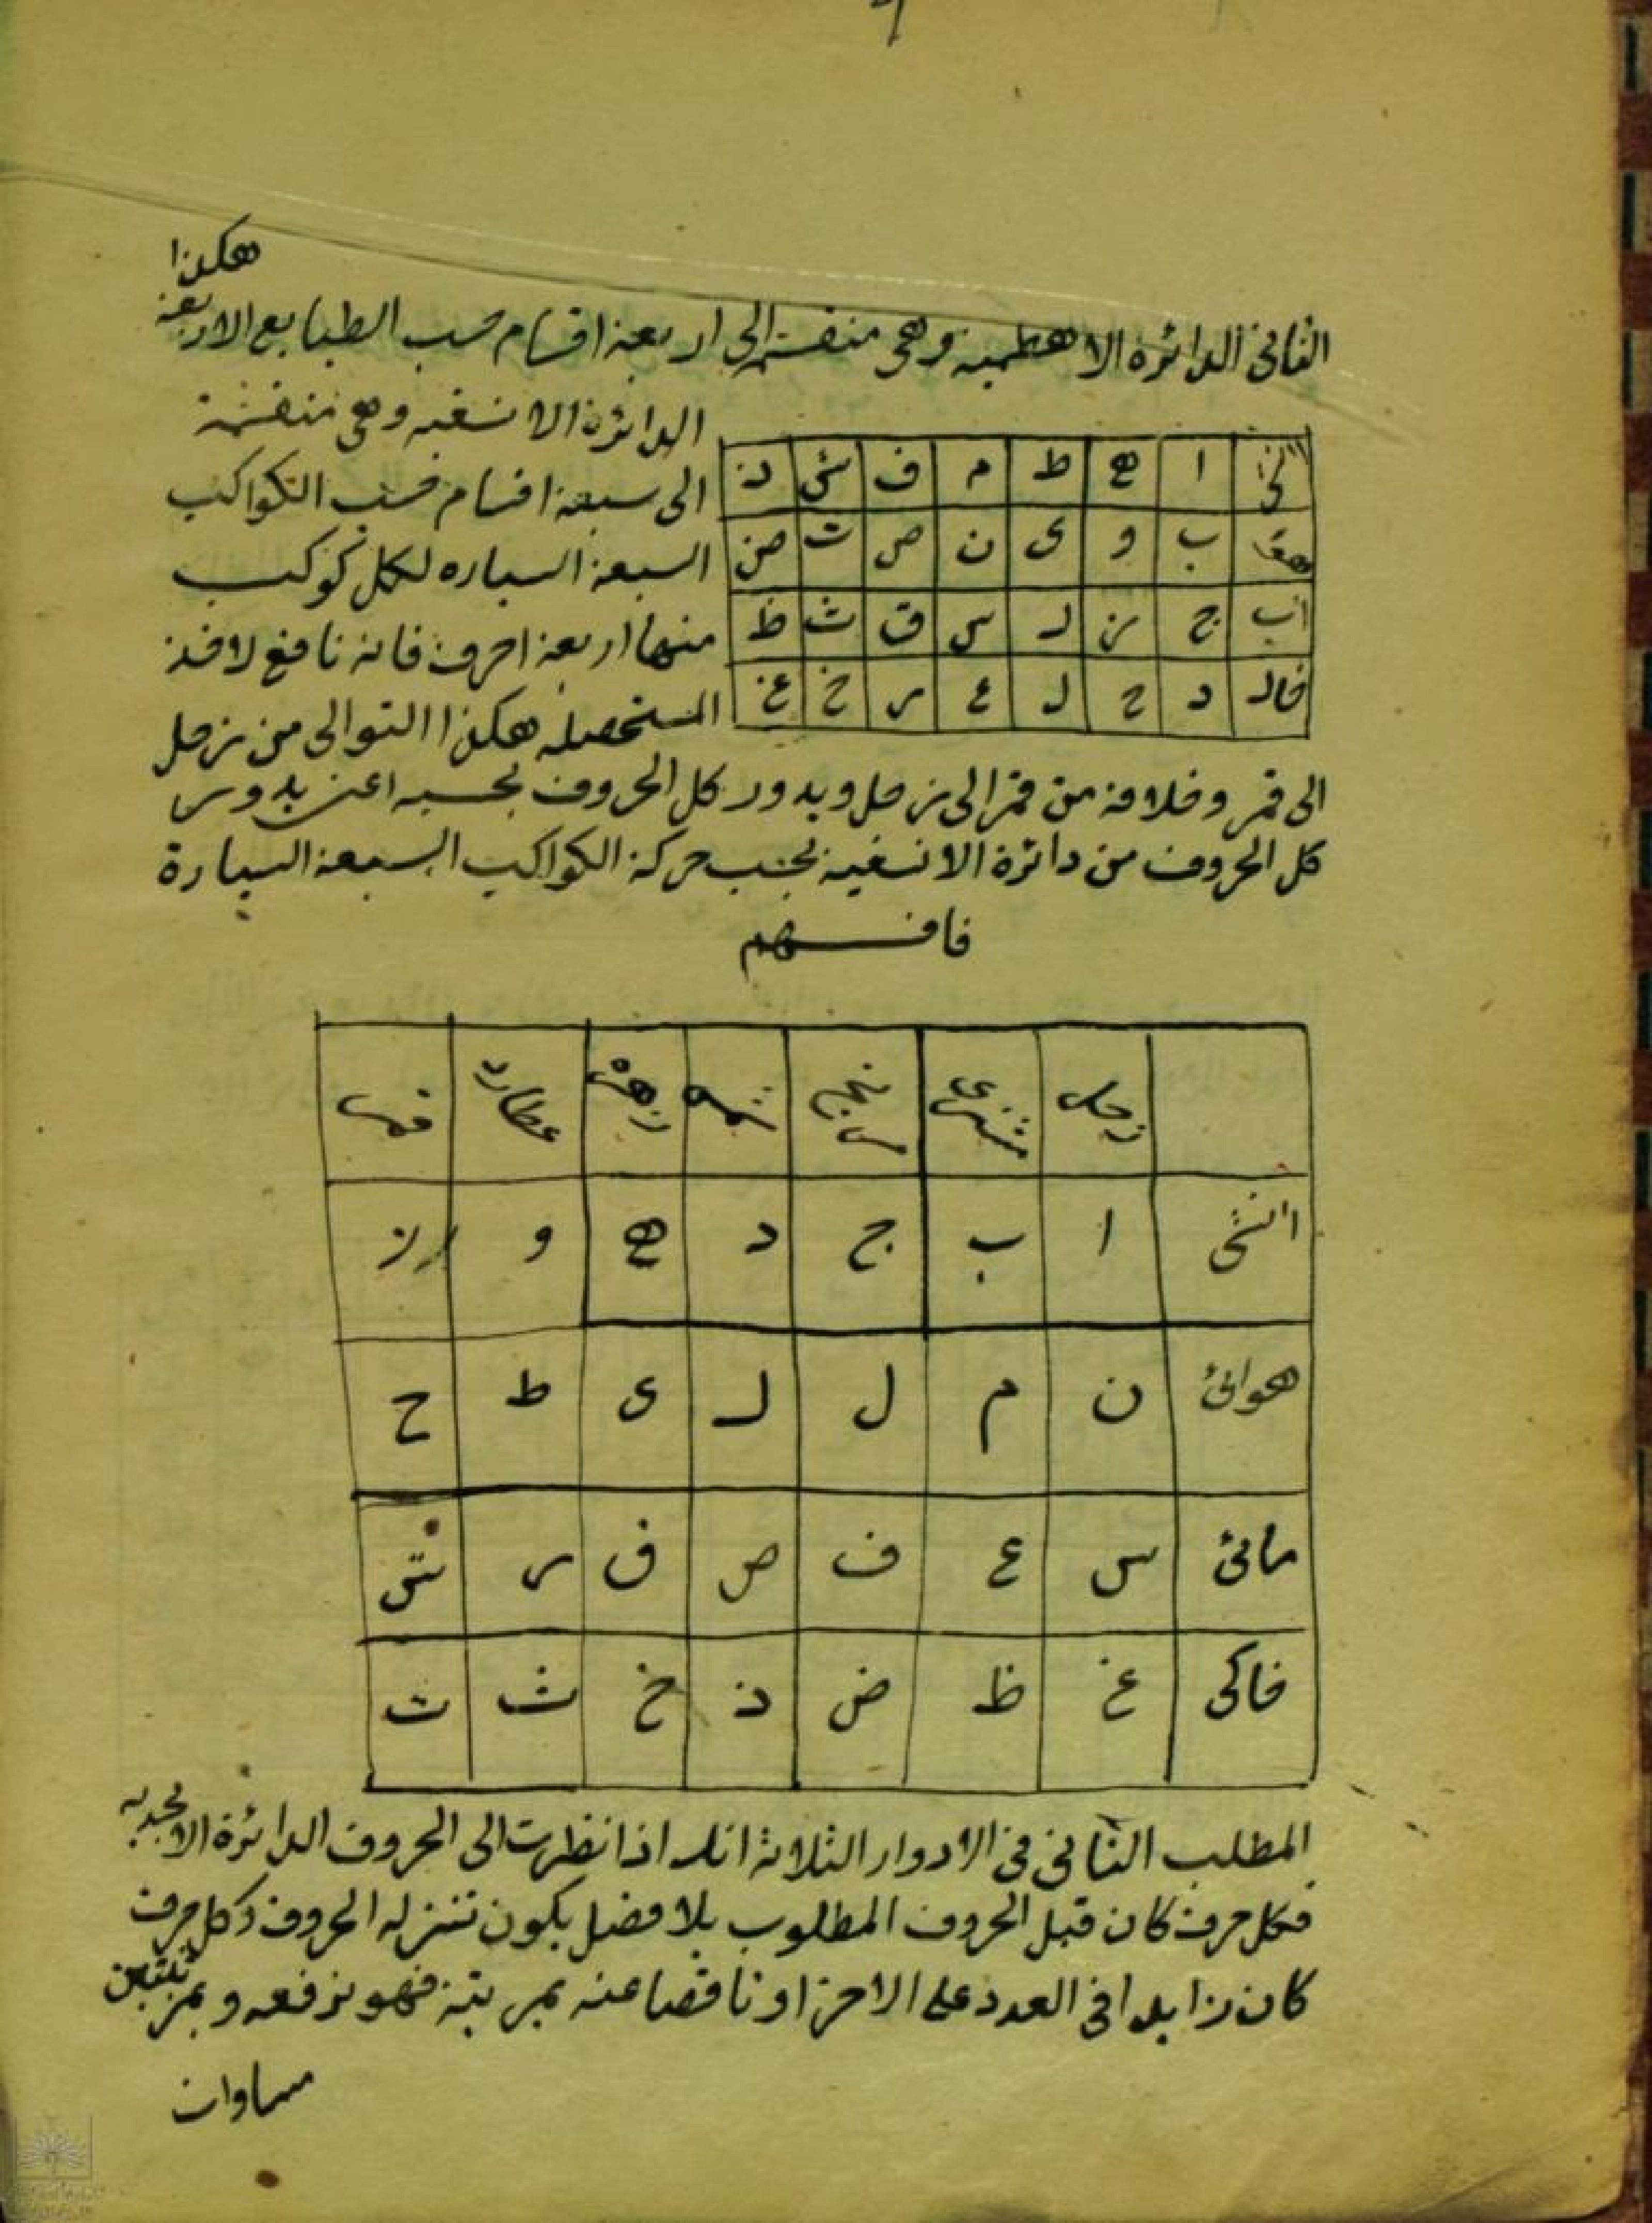 هكذا
الثانى الدائرة الاهطمية وهى منقسم الى اربعة اقسام حسب الطبايع الاربعة
الدائرة الانسغيه وهى منقسمة
الى سبعة اقسام حسب الكواكب
السبعة السياره لكل كوكب
منها اربعة احرف فانه نافع لاخذ
المستحصله هكذا التوالى من زحل
ا ه ط م ف ش ذ
ب و ى ن ص ت ض
اب ج ز ك س ق ث ظ
خاك د ح ل ع ر خ غ
الى قمر وخلافه من قمر الى زحل ويدور كل الحروف بحسبه اعنى يدور
كل الحروف من دائرة الانسغيه بحسب حركة الكواكب السبعة السيارة
فافهم
زحل مشترى مريخ شمس زهره عطارد قمر
اتشى ا ب ج د ه و ز
هوائى ن م ل ك ى ط ح
مائى س ع ف ص ق ر ش
خاكى غ ظ ض ذ خ ث ت
المطلب الثانى فى الادوار الثلاثة انك اذا نظرت الى الحروف الدائرة الابجديه
فكل حرف كان قبل الحروف المطلوب بلا فصل يكون تنزله الحروف وكل حرف
كان زايدا فى العدد على الاخر او ناقصا عنه بمرتبة فهو ترفعه وبمرتبتين
مساوات